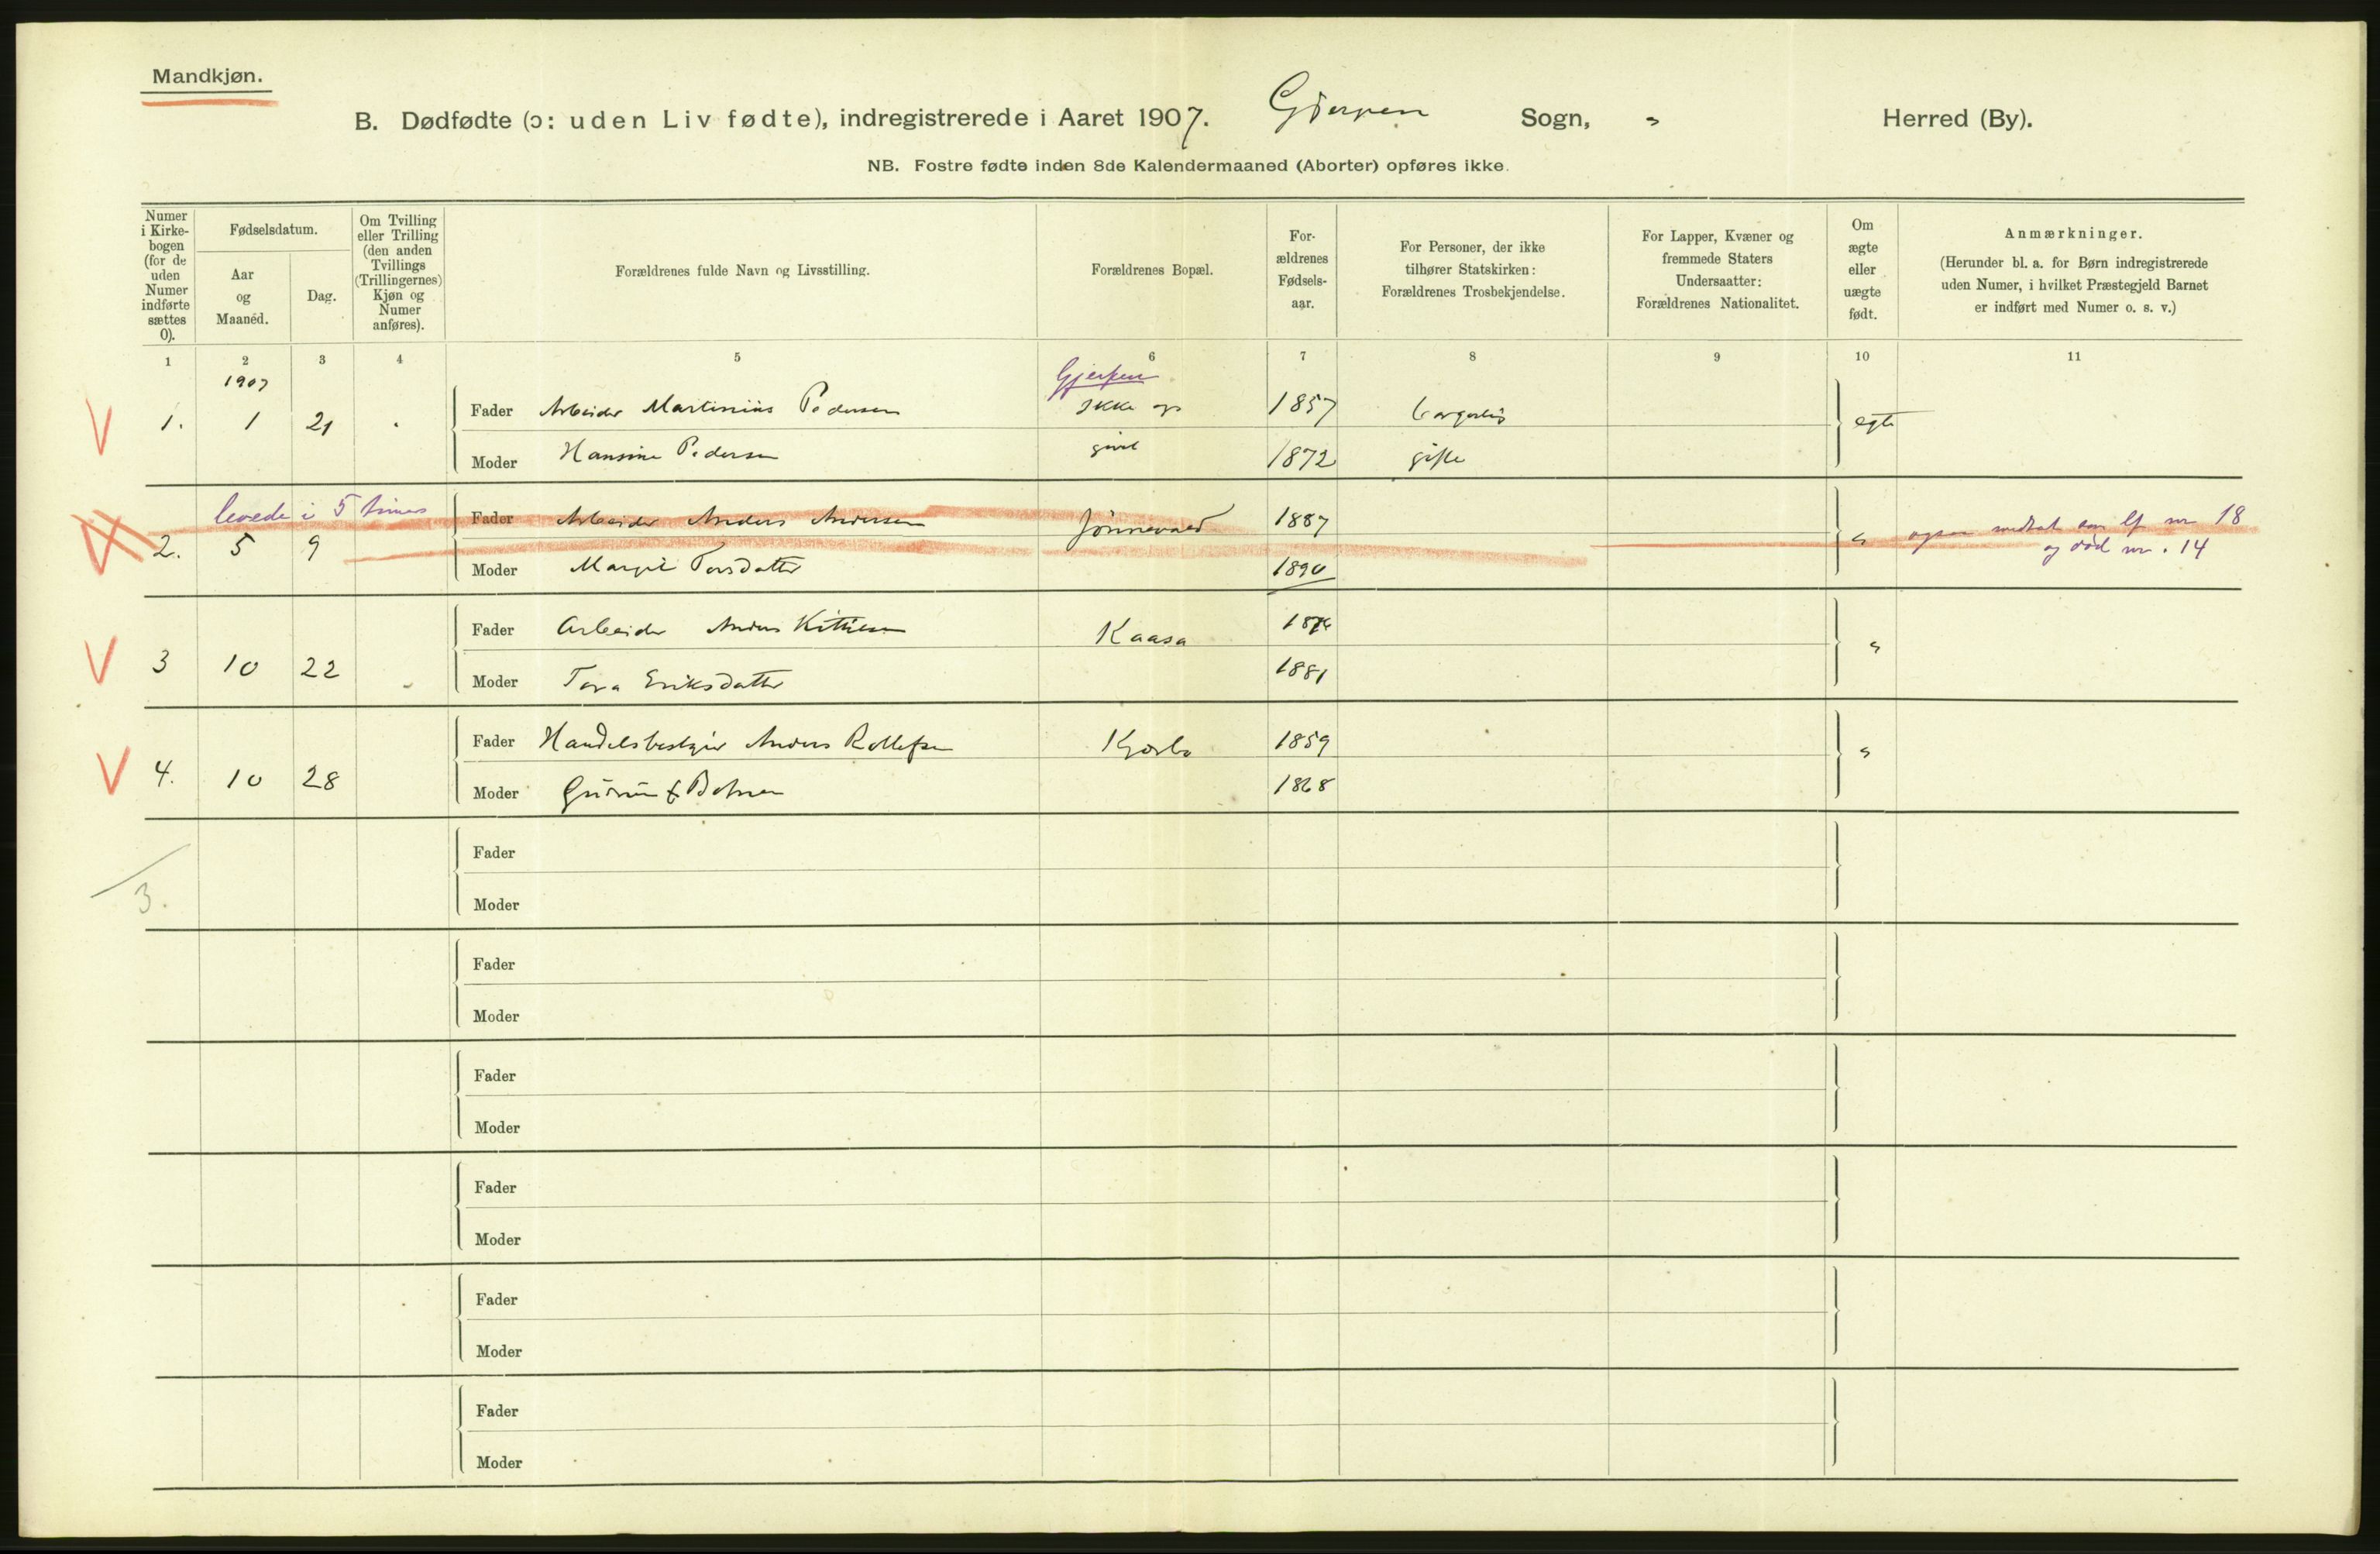 Mandkjøn.
B. Dødfødte (ɔ: uden Liv fødte), indregistrerede i Aaret 1907. Gjerpen Sogn, " Herred (By).
NB. Fostre fødte inden 8de Kalendermaaned (Aborter) opføres ikke.
Numer
i Kirke-
bogen
(for de
uden
Numer
indførte
sættes
0).
Fødselsdatum.
Aar
og
Maaned.
Dag.
Om Tvilling
eller Trilling
(den anden
Tvillings
(Trillingernes)
Kjøn og
Numer
anføres).
Forældrenes fulde Navn og Livsstilling.
Forældrenes Bopæl.
For-
ældrenes
Fødsels-
aar.
For Personer, der ikke
tilhører Statskirken:
Forældrenes Trosbekjendelse.
For Lapper, Kvæner og
fremmede Staters
Undersaatter:
Forældrenes Nationalitet.
Om
ægte
eller
uægte
født.
Anmærkninger.
(Herunder bl. a. for Børn indregistrerede
uden Numer, i hvilket Præstegjeld Barnet
er indført med Numer o. s. v.)
1 2 3 4 5 6 7 8 9 10 11
1907
Gjerpen
1. 1 21 Fader Arbeider Martinius Pedersen Ikke op 1857 borgerlig egte
Moder Hansine Pedersen givet 1872 gifte
levede i 5 timer
2. 5 9 Fader Arbeider Anders Andersen Jønnevald 1887 " ogsaa medtat som lf nr 18
og død nr. 14
Moder Margit Torsdatter 1890
3 10 22 Fader Arbeider Anders Kittilsen Kaasa "
Moder Tora Eriksdatter 1881
4. 10 28 Fader Handelsbestyrer Anders Rollefsen 1859 "
Moder Gudrun 1868
3.
Fader
Moder
Fader
Moder
Fader
Moder
Fader
Moder
Fader
Moder
Fader
Moder